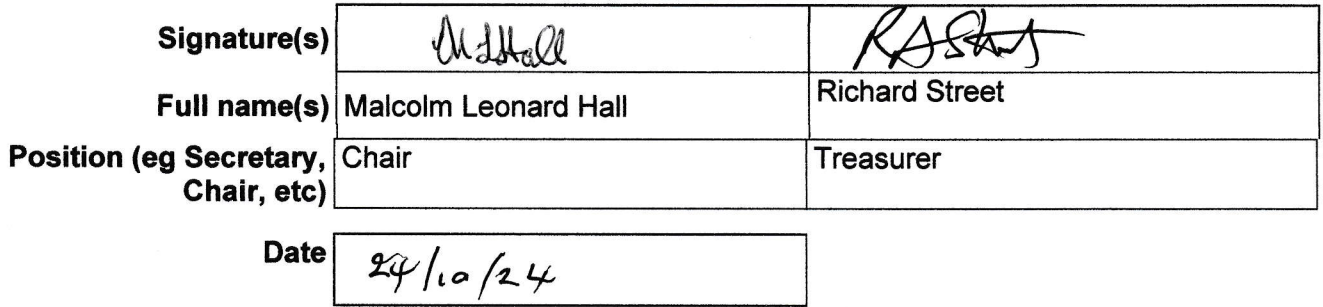 Signature(s) MLHall RAStreet
Full name(s) Malcolm Leonard Hall Richard Street
Position (eg Secretary, Chair Treasurer
Chair, etc)
Date 24/10/24